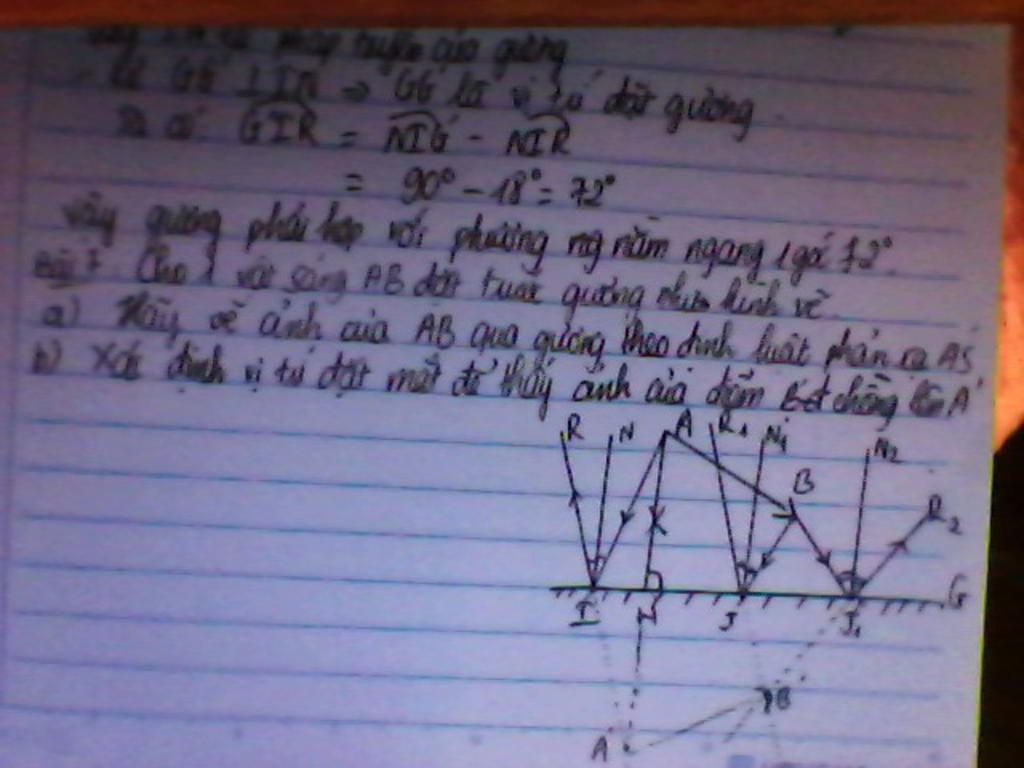 pháp tuyến của gương
GG' ⊥ IN ⇒ GG' là vị trí đặt gương.
Ta có: GIR = NIG' - NIR
= 90° - 18° = 72°
vậy gương phải hợp với phương ng nằm ngang 1 góc 72°.
Bài 7. Cho 1 vật sáng AB đặt trước gương như hình vẽ.
a) Hãy vẽ ảnh của AB qua gương theo định luật phản xạ AS
b) Xác định vị trí đặt mắt để thấy ảnh của điểm B' chồng lên A'
R N A R₁ N₁ N₂
B
R₂
G
I H J J₁
B'
A'